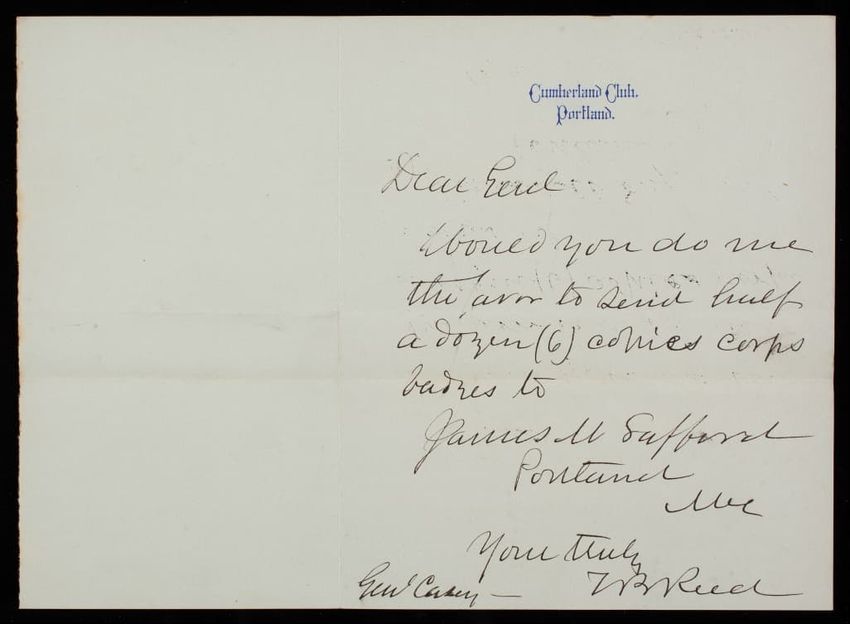 Cumberland Club.
Portland.
Dear Genl
Would you do me
the favor to send half
a dozen (6) copies corps
badges to
James M Safford
Portland
Me
Yours truly
T B Reed
Genl Casey —